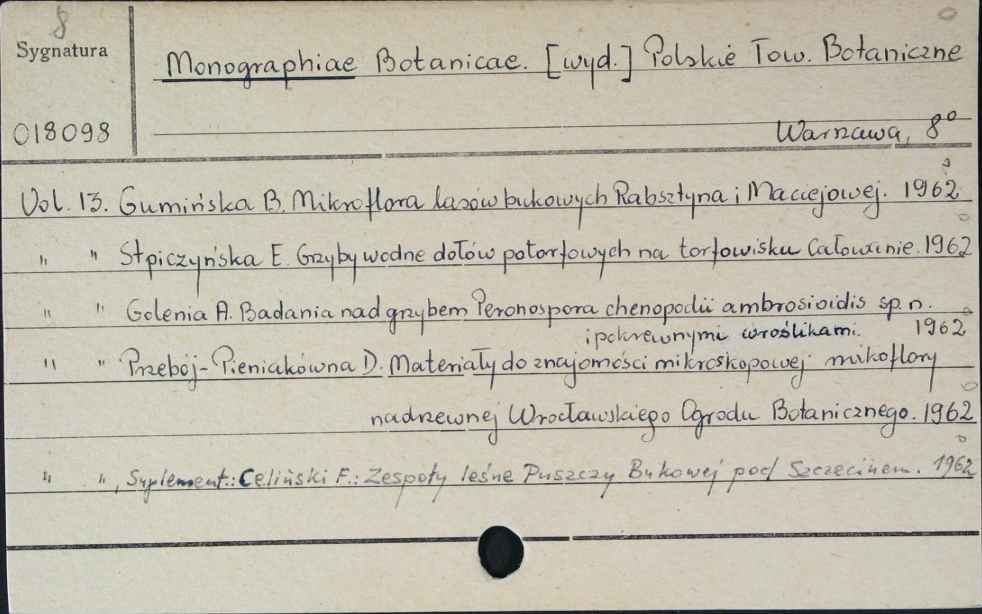 8
Sygnatura
Monographiae Botanicae. [wyd.] Polskie Tow. Botaniczne
018098
Warszawa, 8°
Vol. 13. Gumińska B. Mikroflora lasów bukowych Rabsztyna i Maciejowej. 1962
" " Stpiczyńska E. Grzyby wodne dołów potorfowych na torfowisku Całowanie. 1962
" " Golenia A. Badania nad grzybem Peronospora chenopodii ambrosioidis sp. n.
i pokrewnymi wroślikami. 1962
" " Przebój-Pieniakówna D. Materiały do znajomości mikroskopowej mikoflory
nadrzewnej Wrocławskiego Ogrodu Botanicznego. 1962
" ", Suplement.: Celiński F.: Zespoły leśne Puszczy Bukowej pod Szczecinem. 1962